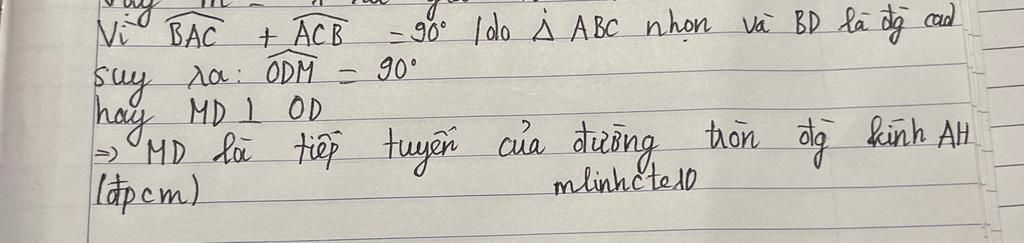 Vì BAC + ACB = 90° (do Δ ABC nhọn và BD là đg cao)
suy ra: ODM = 90°
hay MD ⊥ OD
=> MD là tiếp tuyến của đường tròn đg kính AH
(đpcm) mlinhcte10